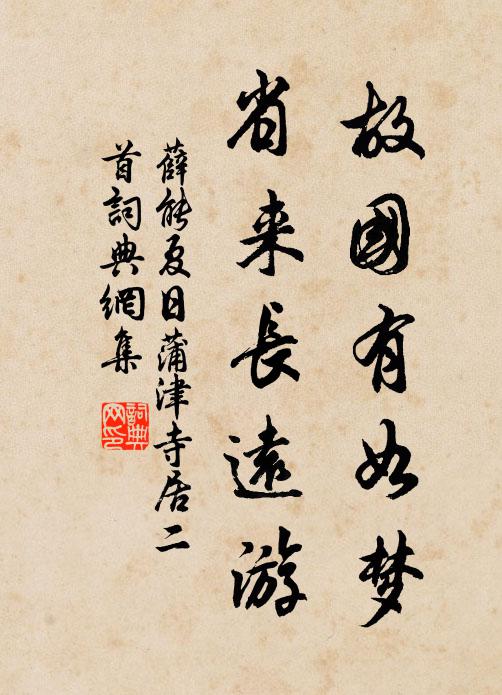 故國有如梦
省来長遠游
薛能夏日蒲津寺居二
首詞典網集
詞典网印